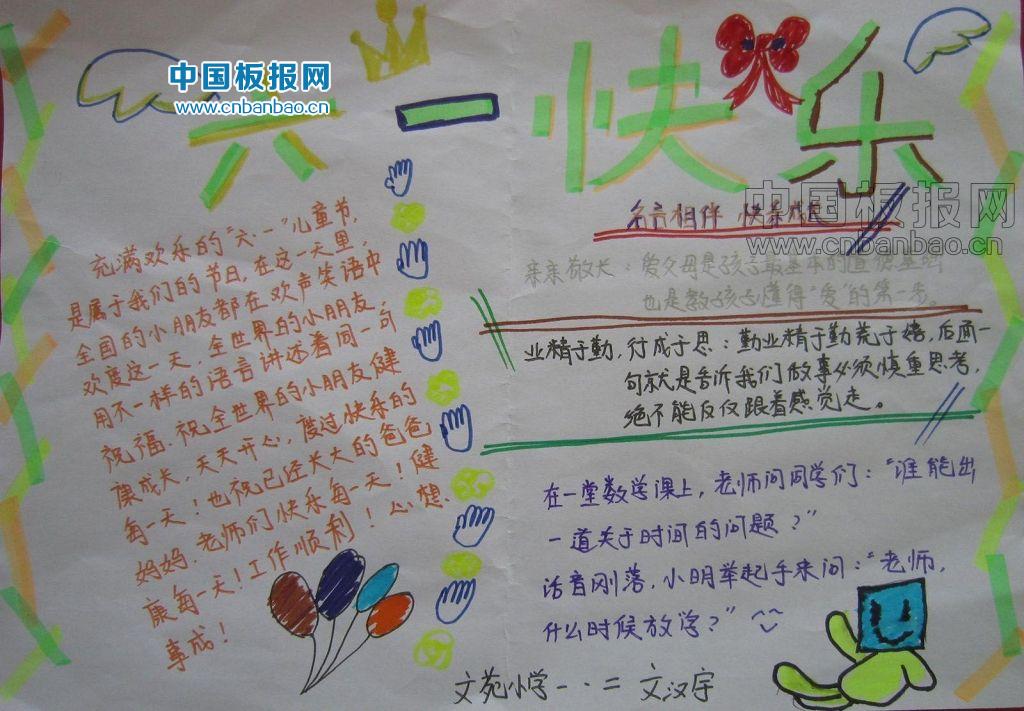 中国板报网
www.cnbanbao.cn
六一快乐
充满欢乐的“六·一”儿童节,
是属于我们的节日,在这一天里,
全国的小朋友都在欢声笑语中
欢度这一天,全世界的小朋友,
用不一样的语言讲述着同一句
祝福.祝全世界的小朋友健
康成长,天天开心,度过快乐的
每一天!也祝已经长大的爸爸
妈妈.老师们快乐每一天!健
康每一天!工作顺利!心想
事成!
名言相伴 快乐成长
中国板报网
www.cnbanbao.cn
亲亲敬长:爱父母是孩子最基本的道德基础
也是教孩子懂得“爱”的第一步。
业精于勤,行成于思:勤业精于勤荒于嬉,后面一
句就是告诉我们做事必须慎重思考,
绝不能仅仅跟着感觉走。
在一堂数学课上,老师问同学们:“谁能出
一道关于时间的问题?”
话音刚落,小明举起手来问:“老师,
什么时候放学?”
文苑小学一·二 文汉宇